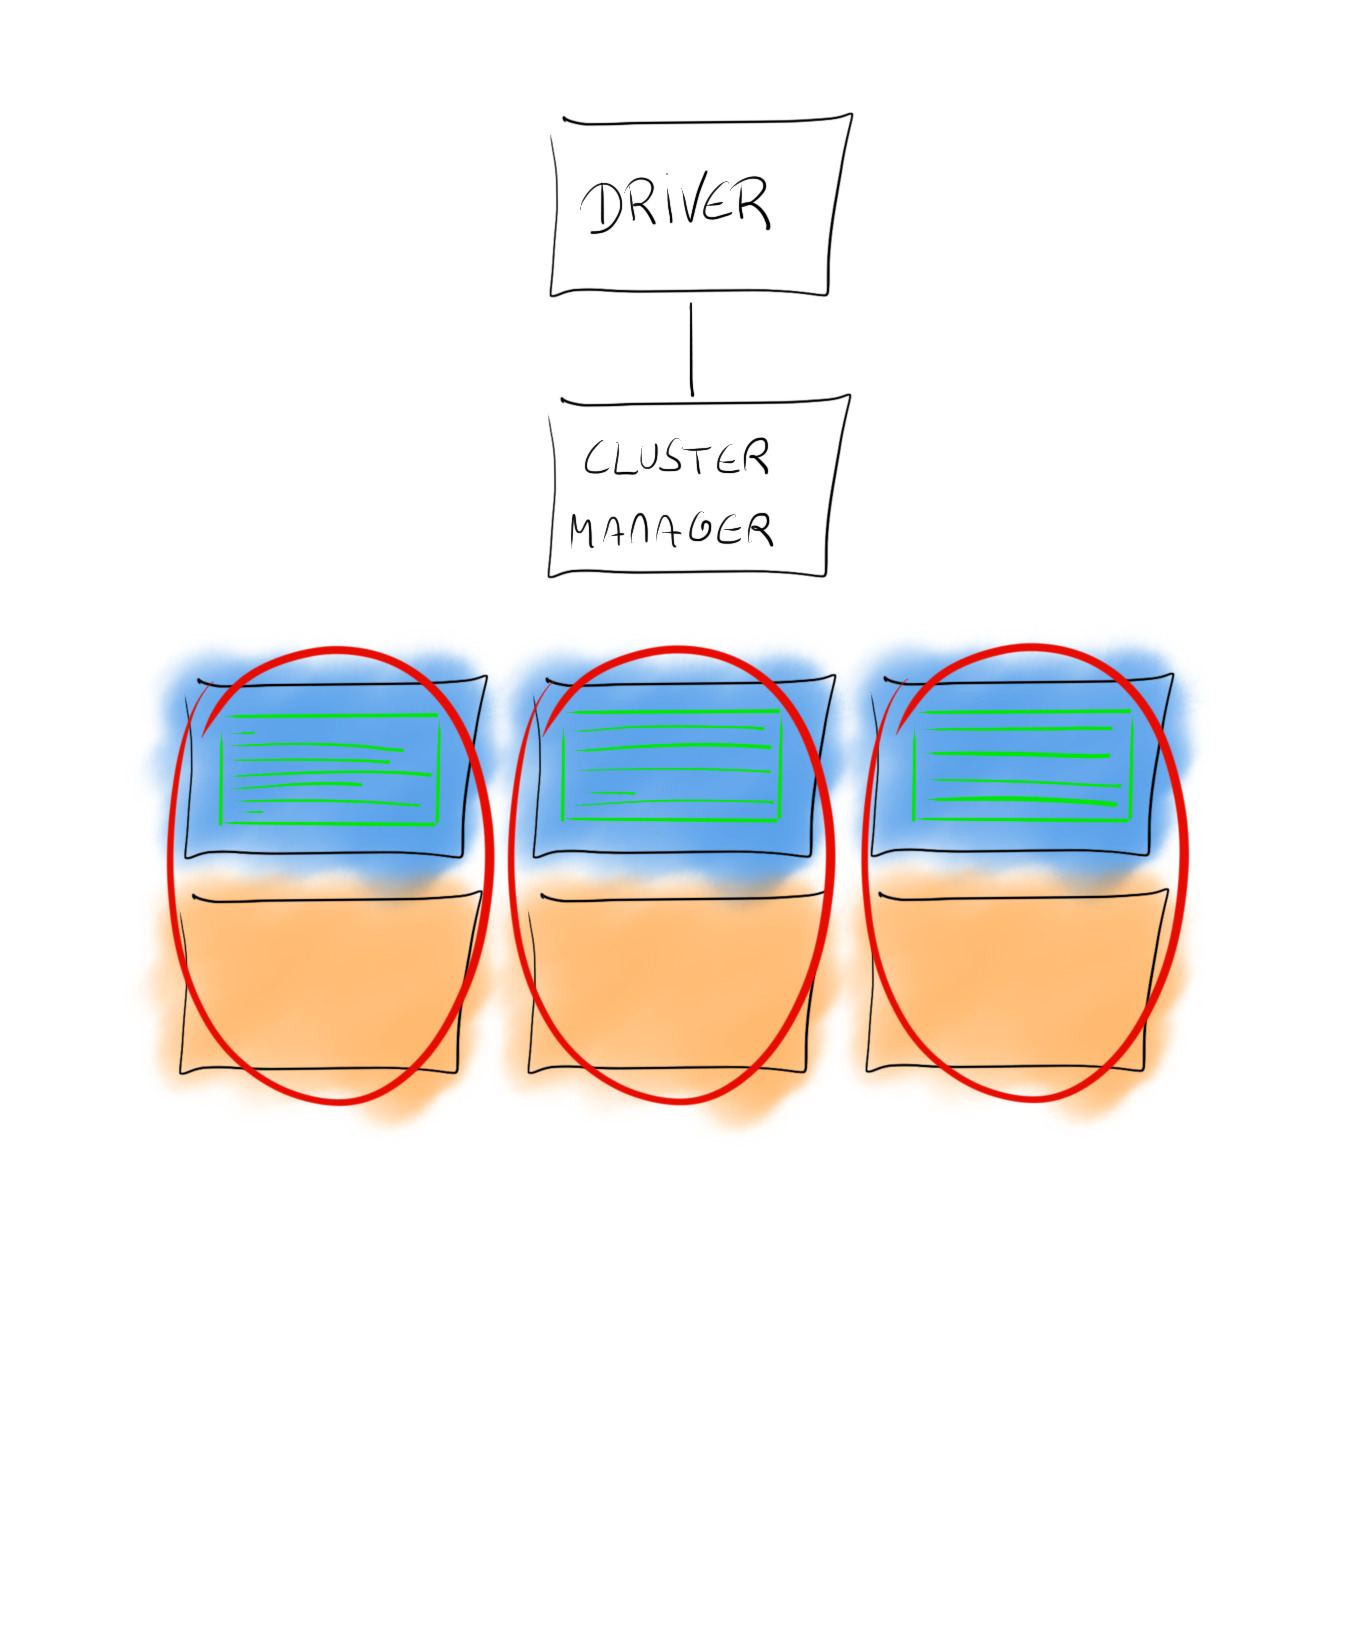 DRIVER
CLUSTER
MANAGER